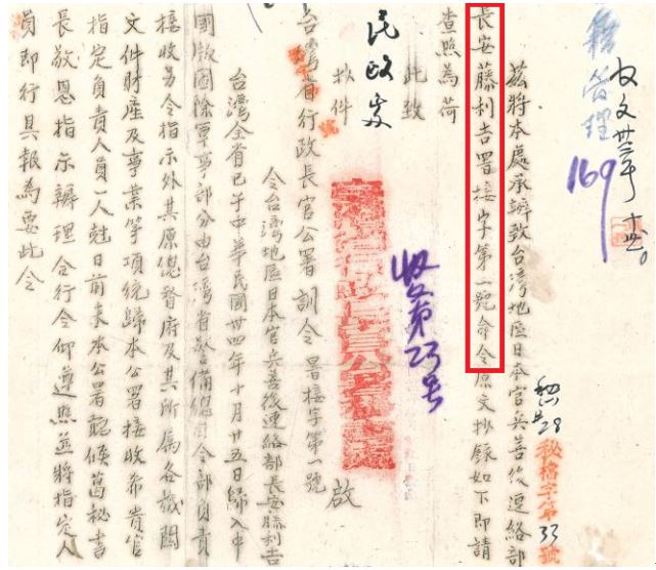 管理
收文 卅年 十
169
茲將本處承辦致台湾地區日本官兵善後連絡部
長安藤利吉署接字第一號命令原文抄錄如下即請
查照為荷
此致
民政処
秘
28
秘檔字第33號
收文第23号
啟
台湾省行政長官公署 訓令 署接字第一號
令台湾地區日本官兵善後連絡部長安藤利吉
台湾全省已于中華民國卅四年十月廿五日歸入中
國版圖除軍事部分由台湾省警備總司令部負責
接收另令指示外其原總督府及其所屬各機關
文件財產及事業等項統歸本公署接收希貴官
指定負責人員一人尅日前来本公署聽候葛秘書
長敬恩指示辦理合行令仰遵照並將指定人
員即行具報為要此令